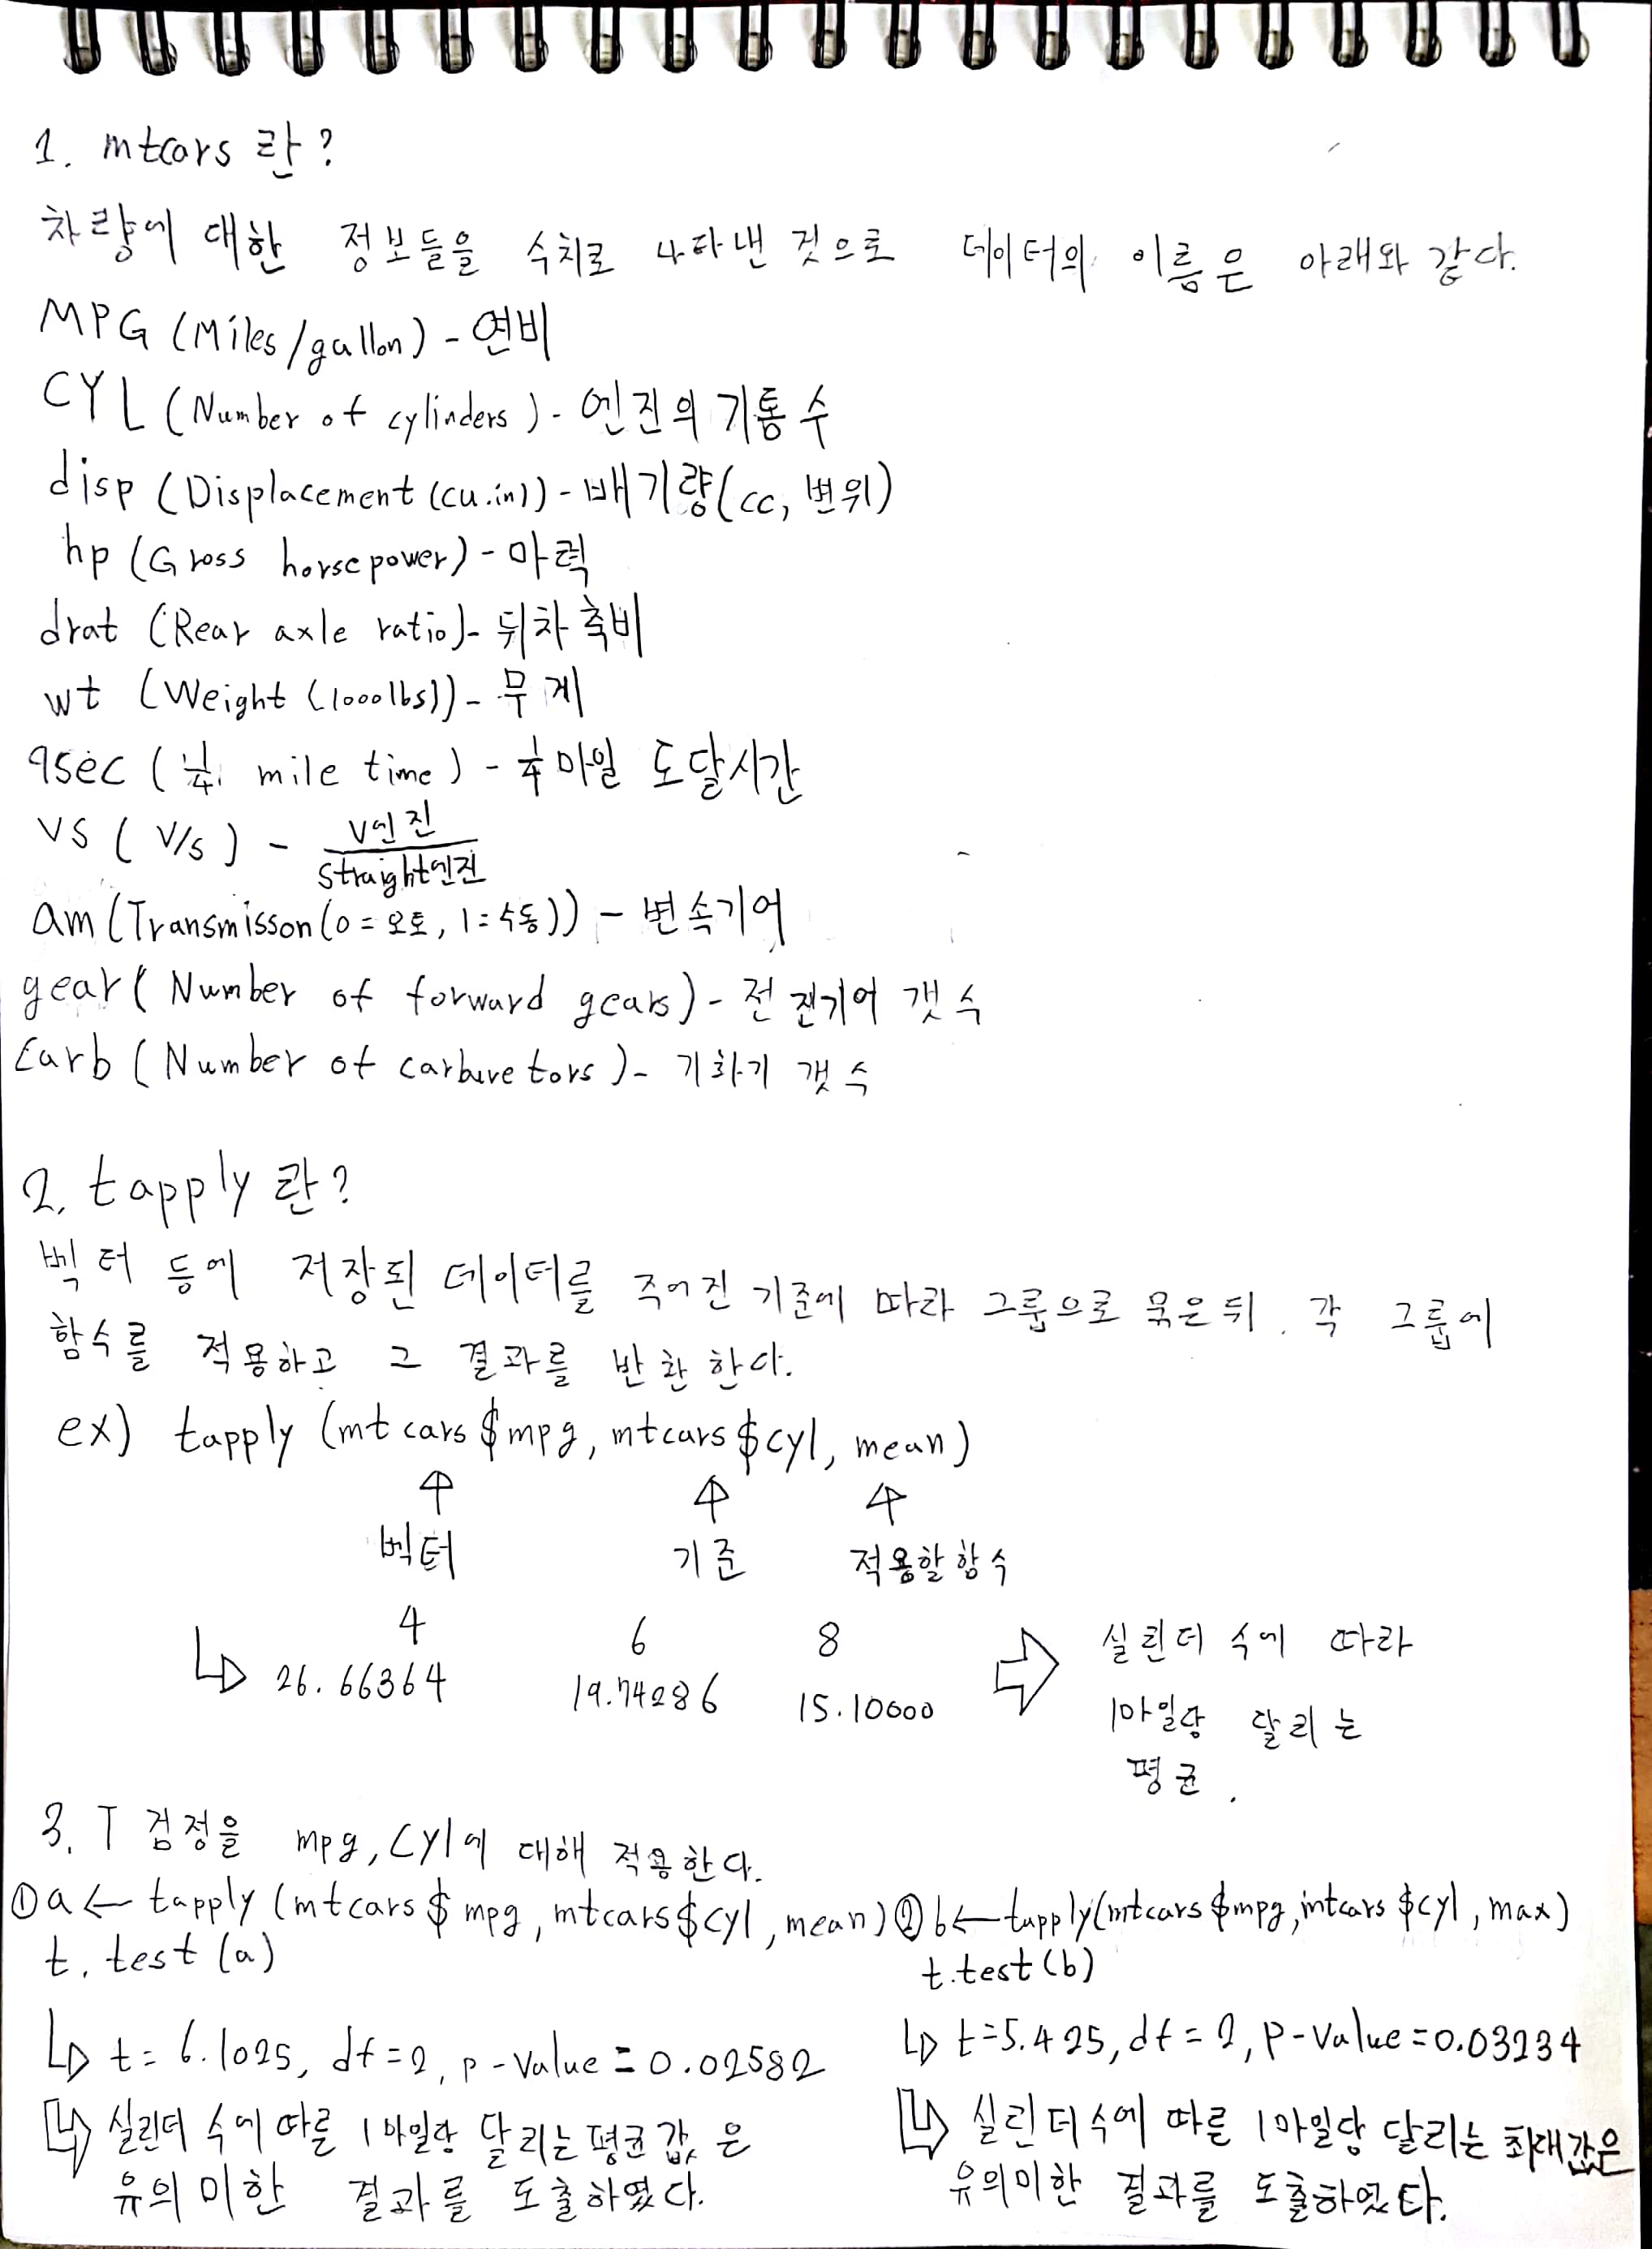 1. mtcars 란?
차량에 대한 정보들을 수치로 나타낸 것으로 데이터의 이름은 아래와 같다.
MPG (Miles/gallon) - 연비
CYL (Number of cylinders) - 엔진의 기통 수
disp (Displacement (cu.in)) - 배기량(cc, 변위)
hp (Gross horsepower) - 마력
drat (Rear axle ratio) - 뒤차축비
wt (Weight (1000lbs)) - 무게
qsec (1/4 mile time) - 1/4마일 도달시간
VS (V/s) - V엔진/Straight엔진
am (Transmisson (0=오토, 1=수동)) - 변속기어
gear (Number of forward gears) - 전진기어 갯수
Carb (Number of carburetors) - 기화기 갯수
2. tapply 란?
벡터 등에 저장된 데이터를 주어진 기준에 따라 그룹으로 묶은 뒤. 각 그룹에
함수를 적용하고 그 결과를 반환한다.
ex) tapply (mtcars$mpg, mtcars$cyl, mean)
벡터 기준 적용할함수
4 6 8
26.66364 19.74286 15.10000 ⇨ 실린더 수에 따라
1마일당 달리는
평균.
3. T 검정을 mpg, Cyl에 대해 적용한다.
① a ← tapply (mtcars$mpg, mtcars$cyl, mean)
t.test (a)
t = 6.1025, df = 2, p-value = 0.02582
실린더 수에 따를 1마일당 달리는 평균값은
유의미한 결과를 도출하였다.
② b ← tapply(mtcars$mpg, mtcars$cyl, max)
t.test(b)
t=5.425, df = 2, p-value=0.03234
실린더수에 따른 1마일당 달리는 최대값은
유의미한 결과를 도출하였다.